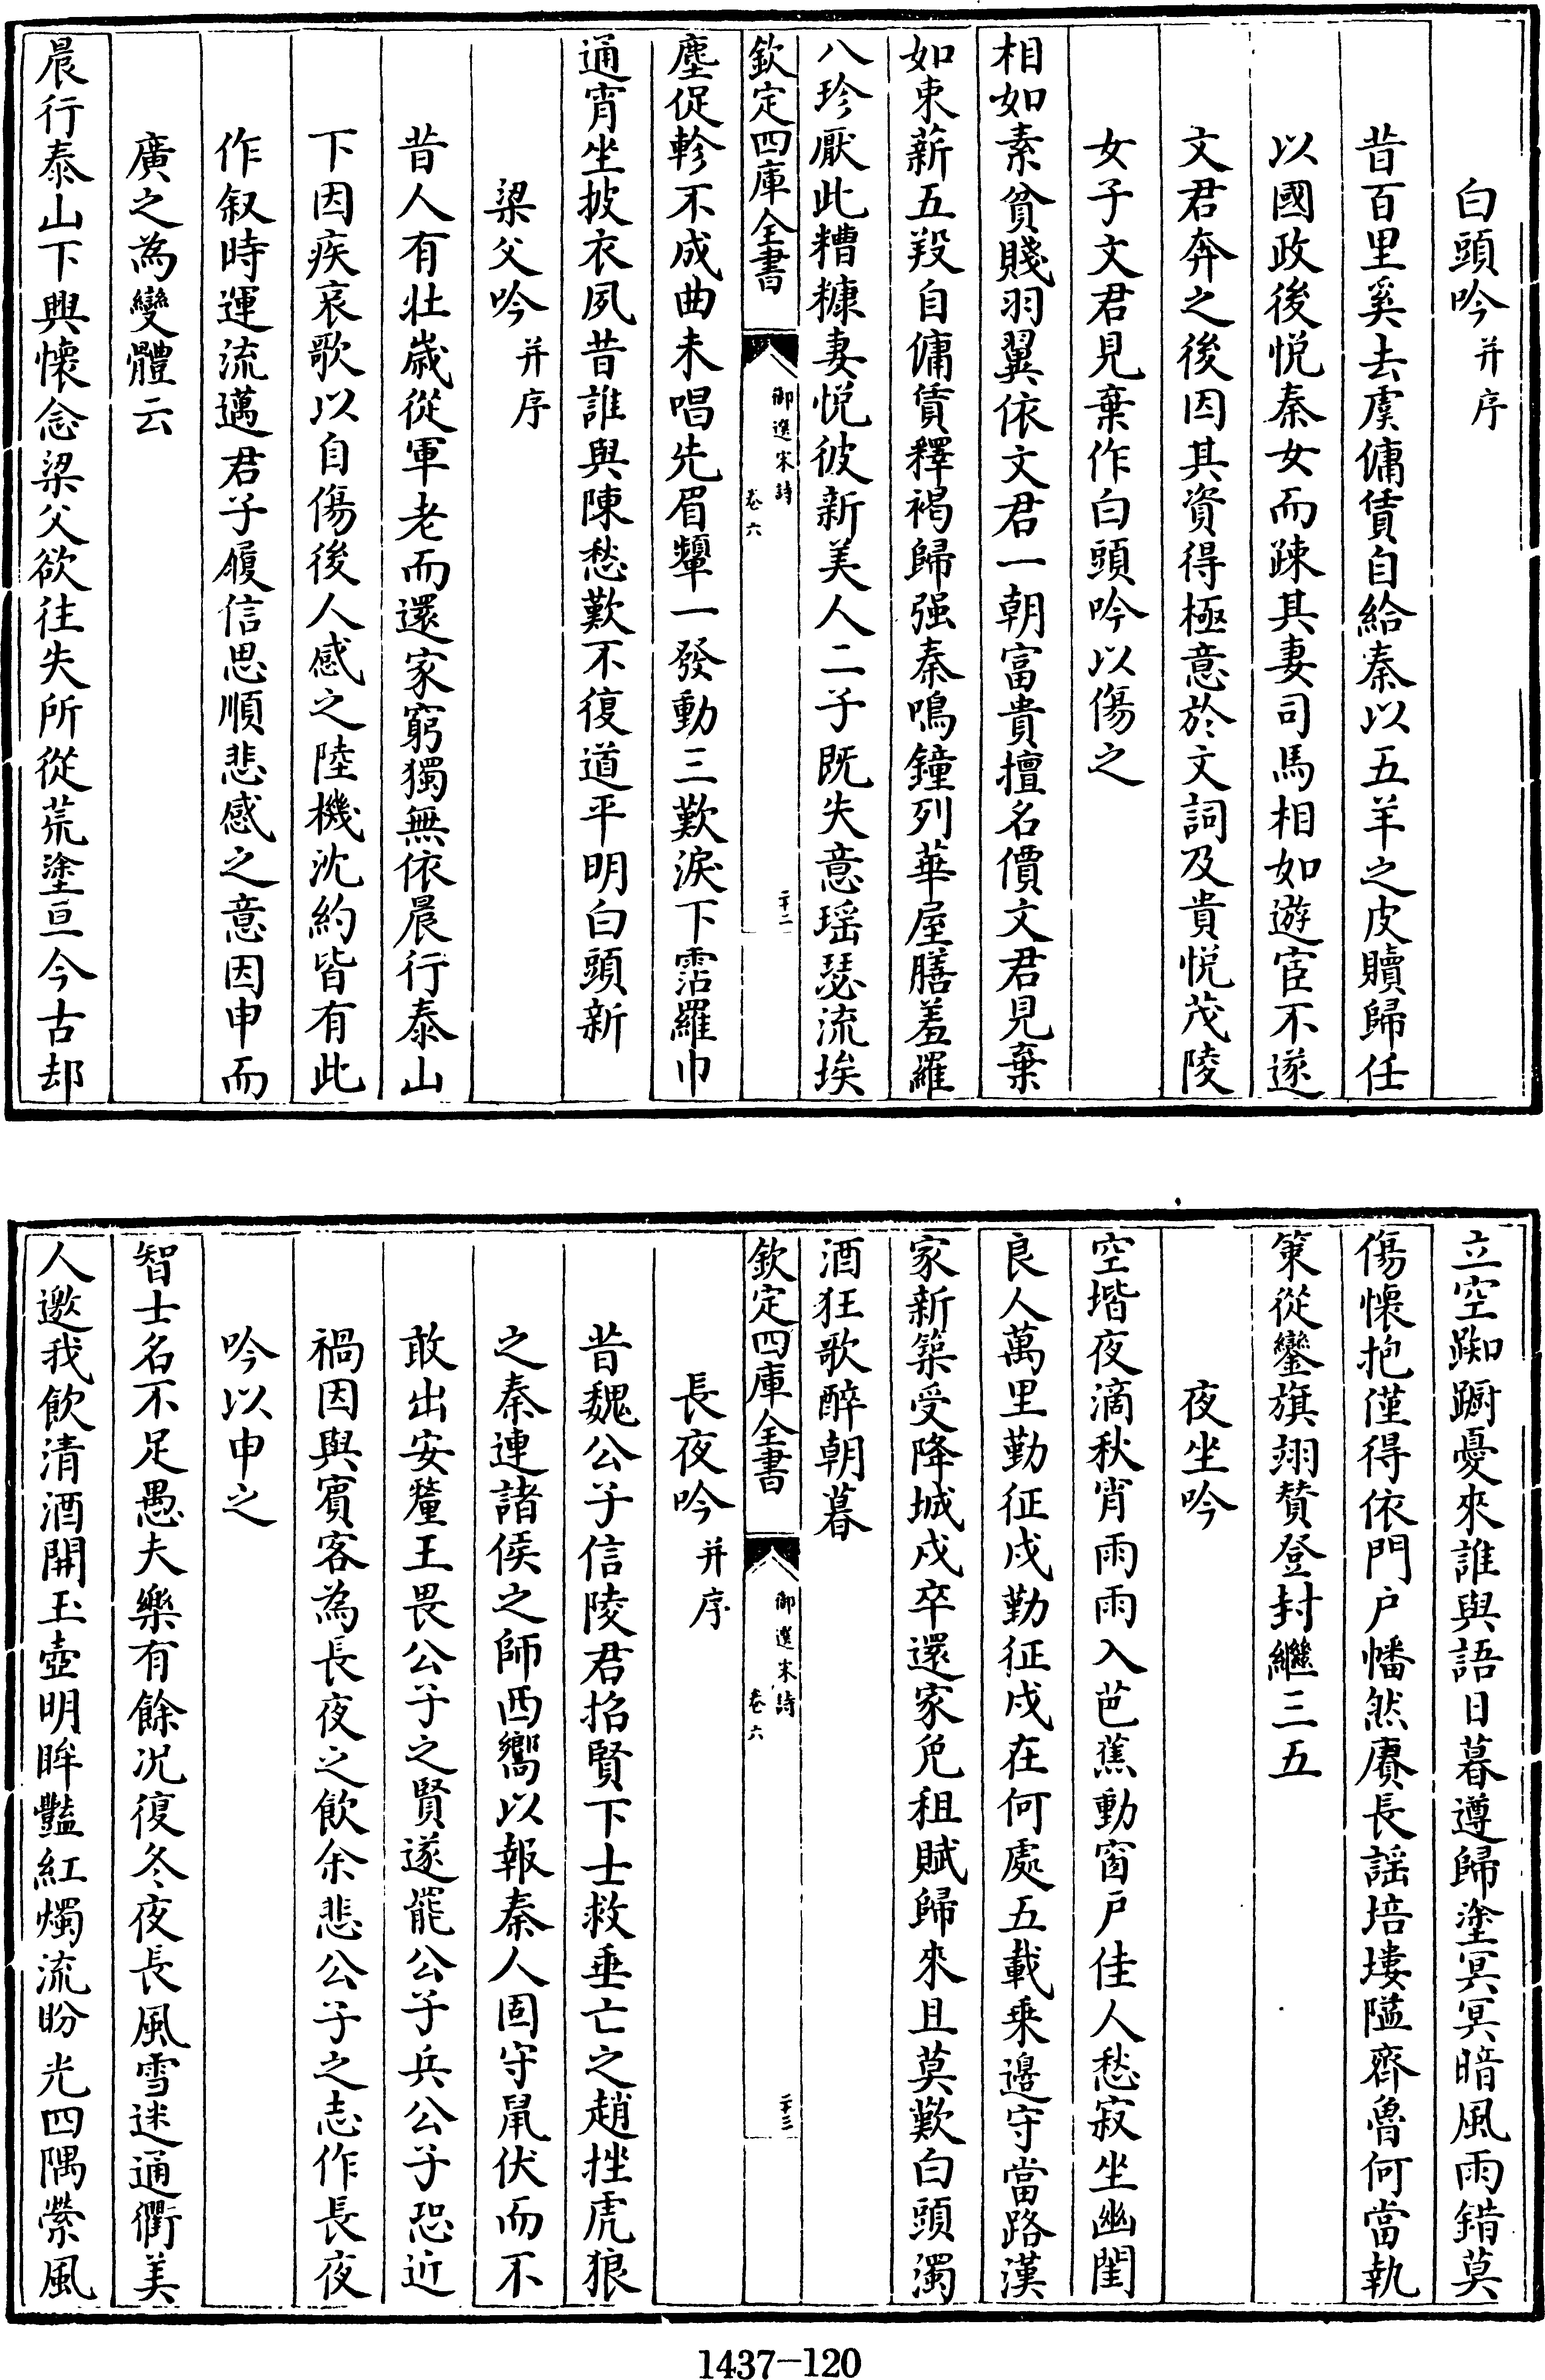 白頭吟并序
昔百里奚去虞傭賃自給秦以五羊之皮贖歸任
以國政後悅秦女而踈其妻司馬相如遊宦不遂
文君奔之後因其資得極意於文詞及貴悅茂陵
女子文君見棄作白頭吟以傷之
相如素貧賤羽翼依文君一朝富貴擅名價文君見棄
如束薪五羖自傭賃釋褐歸强秦鳴鐘列華屋膳羞羅
八珍厭此糟糠妻悅彼新美人二子既失意瑶瑟流埃
欽定四庫全書
御選宋詩
卷六
二十二
塵促軫不成曲未唱先眉顰一發動三歎淚下霑羅巾
通宵坐披衣夙昔誰與陳愁歎不復道平明白頭新
梁父吟并序
昔人有壮歲從軍老而還家窮獨無依晨行泰山
下因疾哀歌以自傷後人感之陸機沈約皆有此
作叙時運流邁君子履信思順悲感之意因申而
廣之為變體云
晨行泰山下興懷念梁父欲往失所從荒塗亘今古却
立空踟蹰憂來誰與語日暮遵歸塗冥冥暗風雨錯莫
傷懷抱僅得依門戶幡然賡長謡培塿隘齊魯何當執
策從鑾旗翊贊登封繼三五
夜坐吟
空堦夜滴秋宵雨雨入芭蕉動窗戶佳人愁寂坐幽閨
良人萬里勤征戍勤征戍在何處五載乗邉守當路漢
家新築受降城戍卒還家免租賦歸來且莫歎白頭濁
酒狂歌醉朝暮
欽定四庫全書
御選宋詩
卷六
二十三
長夜吟并序
昔魏公子信陵君招賢下士救垂亡之趙挫虎狼
之秦連諸侯之師西嚮以報秦人固守鼠伏而不
敢出安釐王畏公子之賢遂罷公子兵公子恐近
禍因與賓客為長夜之飲余悲公子之志作長夜
吟以申之
智士名不足愚夫樂有餘况復冬夜長風雪迷通衢美
人邀我飲清酒開玉壺明眸豔紅燭流盼光四隅縈風
1437-120